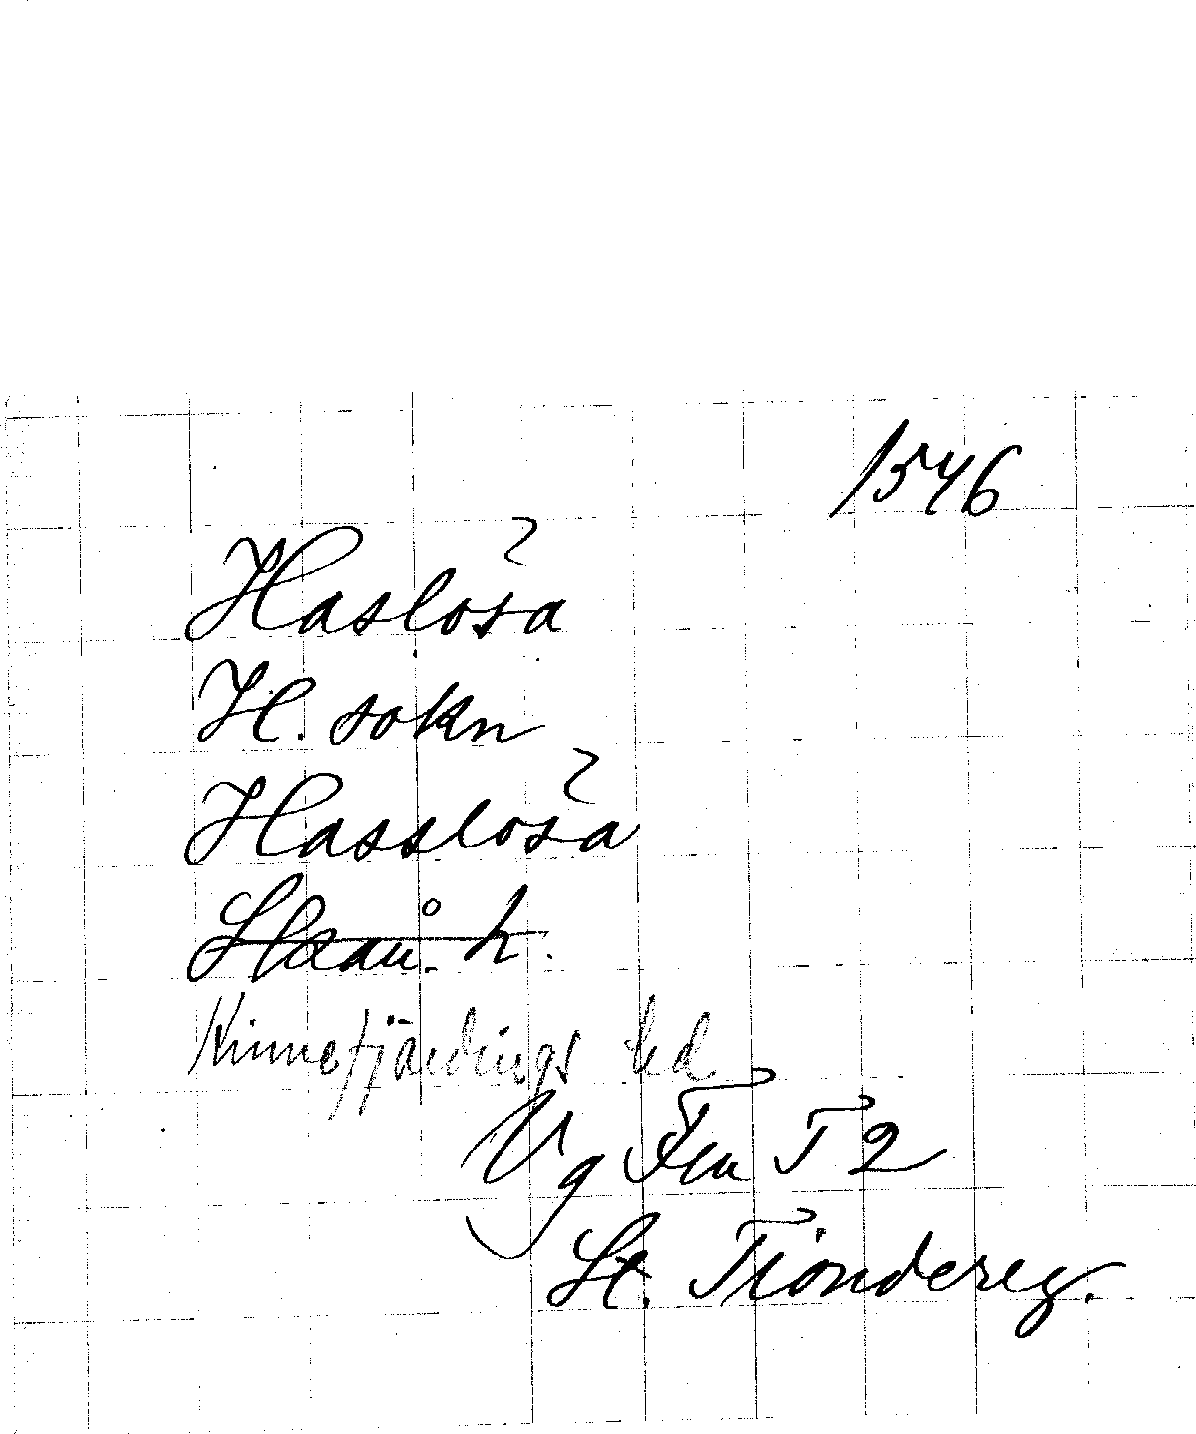 1546
Haslösa
H. sokn
Hasslösa
Skån. h.
Kinnefjärdings hd
Vg Fru T 2
St. Tiondereg.